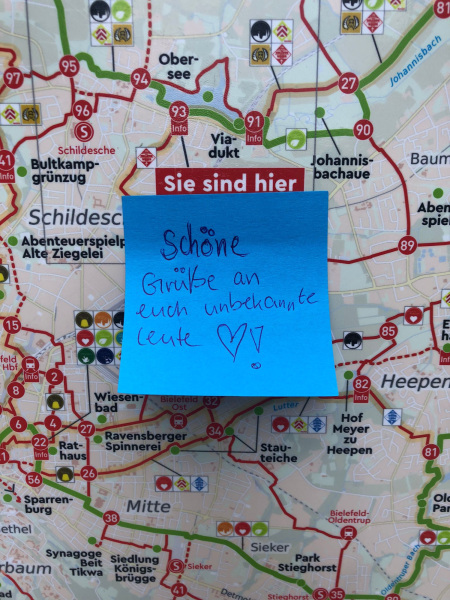 81
Ober-
see
Johannisbach
95
97
94
27
93
Info
91
Info
96
S
Schildesche
Via-
dukt
90
41
Info
Bultkamp-
grünzug
Johannis-
bachaue
Baum
Sie sind hier
Schildesc
Aben
spiel
Abenteuerspielp
Alte Ziegelei
89
Schöne
Grüße an
euch unbekannte
Leute ♡!
15
85
efeld
Hbf
Info
8
2
Heepen
82
Info
Wiesen-
bad
Bielefeld
Ost
32
Lutter
6
4
27
Ravensberger
Spinnerei
34
Hof
Meyer
zu
Heepen
22
Info
Rat-
haus
Stau-
teiche
81
26
56
Sparren-
burg
Mitte
Bielefeld-
Oldentrup
Old
Par
38
ethel
Sieker
Synagoge
Beit
Tikwa
Siedlung
Königs-
brügge
S
Sieker
Park
Stieghorst
rbaum
41
Detm
S
Stieghorst
35